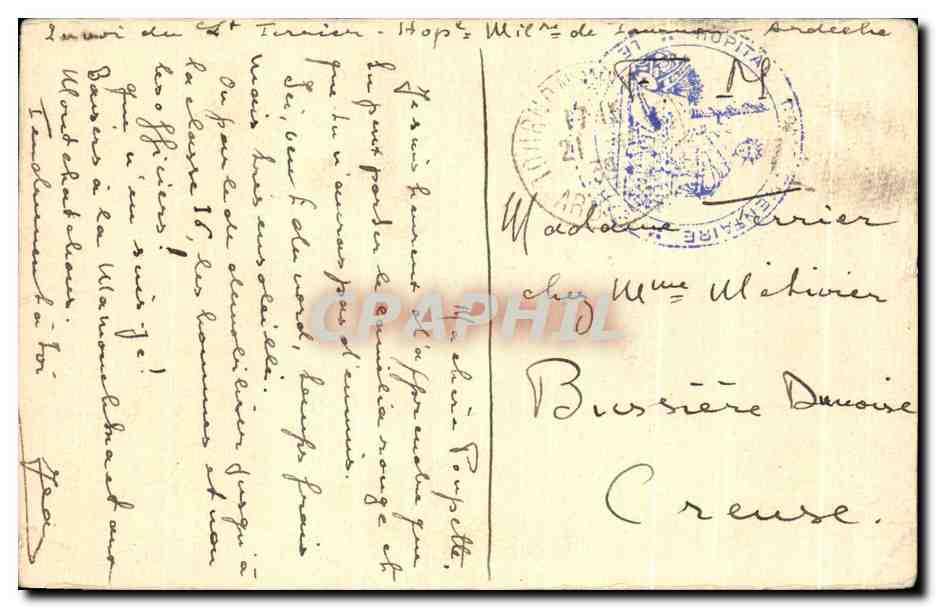 Envoi du Lt Terrier - Hople Milre de Tournon - Ardèche
F M
HOPITAL
Ma chère Poupette.
Je suis heureux d'apprendre que
tu peux porter le camélia rouge et
que tu n'auras pas d'ennuis.
Ici, vent du nord, temps frais
mais très ensoleillé.
On parle de démobiliser jusqu'à
la classe 16, les hommes et non
les officiers!
qu'en suis-je!
Baisers à la et aux
Tendrement à toi
Jean
Madame Terrier
chez Mme Métivier
Bussière Dunoise
Creuse.
CPAPHIL